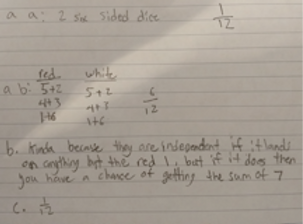 a a: 2 six sided dice 1/12
red white
a b: 5+2 5+2
4+3 4+3 6/12
1+6 1+6
b. Kinda because they are independent if it lands
on anything but the red 1, but if it does then
you have a chance of getting the sum of 7
c. 1/12